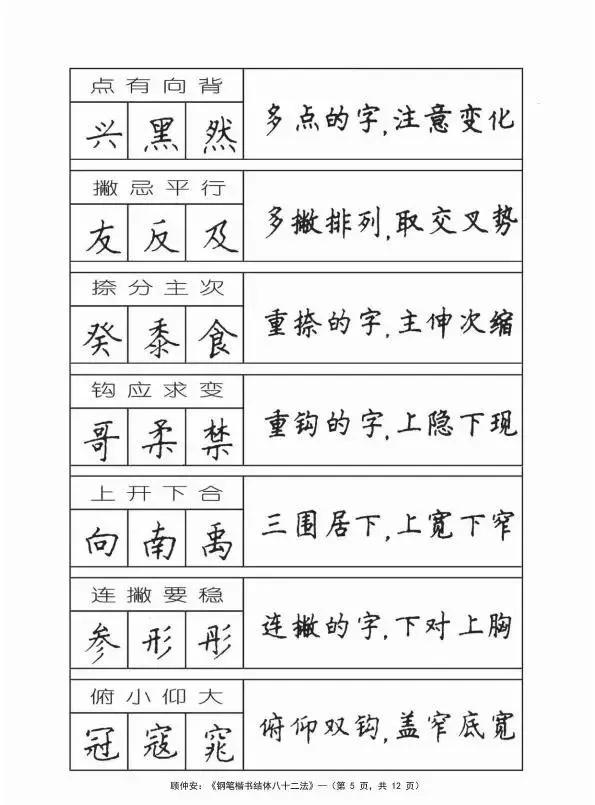 点有向背
兴黑然
多点的字,注意变化
撇忌平行
友反及
多撇排列,取交叉势
捺分主次
癸黍食
重捺的字,主伸次缩
钩应求变
哥柔禁
重钩的字,上隐下现
上开下合
向南禹
三围居下,上宽下窄
连撇要稳
参形彤
连撇的字,下对上胸
俯小仰大
冠寇窕
俯仰双钩,盖窄底宽
顾仲安:《钢笔楷书结体八十二法》—(第 5 页,共 12 页)